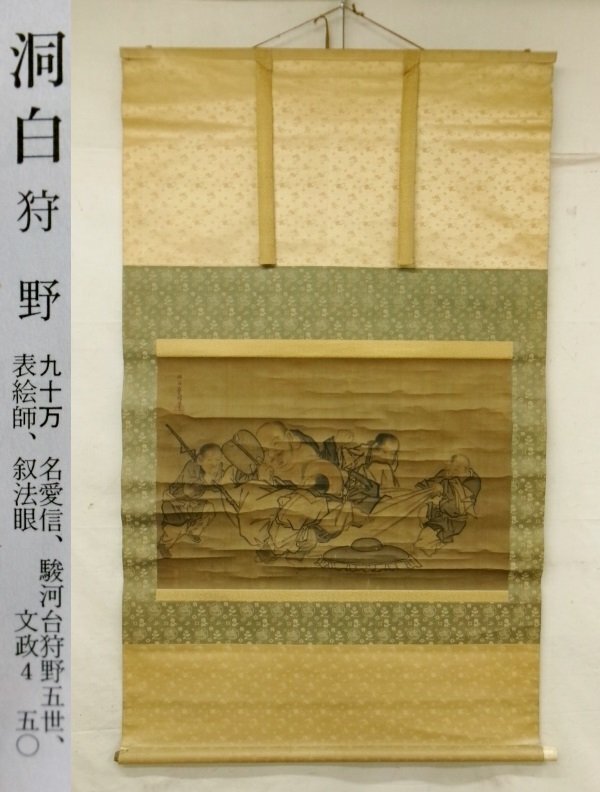 洞白 狩野
九十万 名愛信、駿河台狩野五世、
表絵師、叙法眼 文政4 五〇